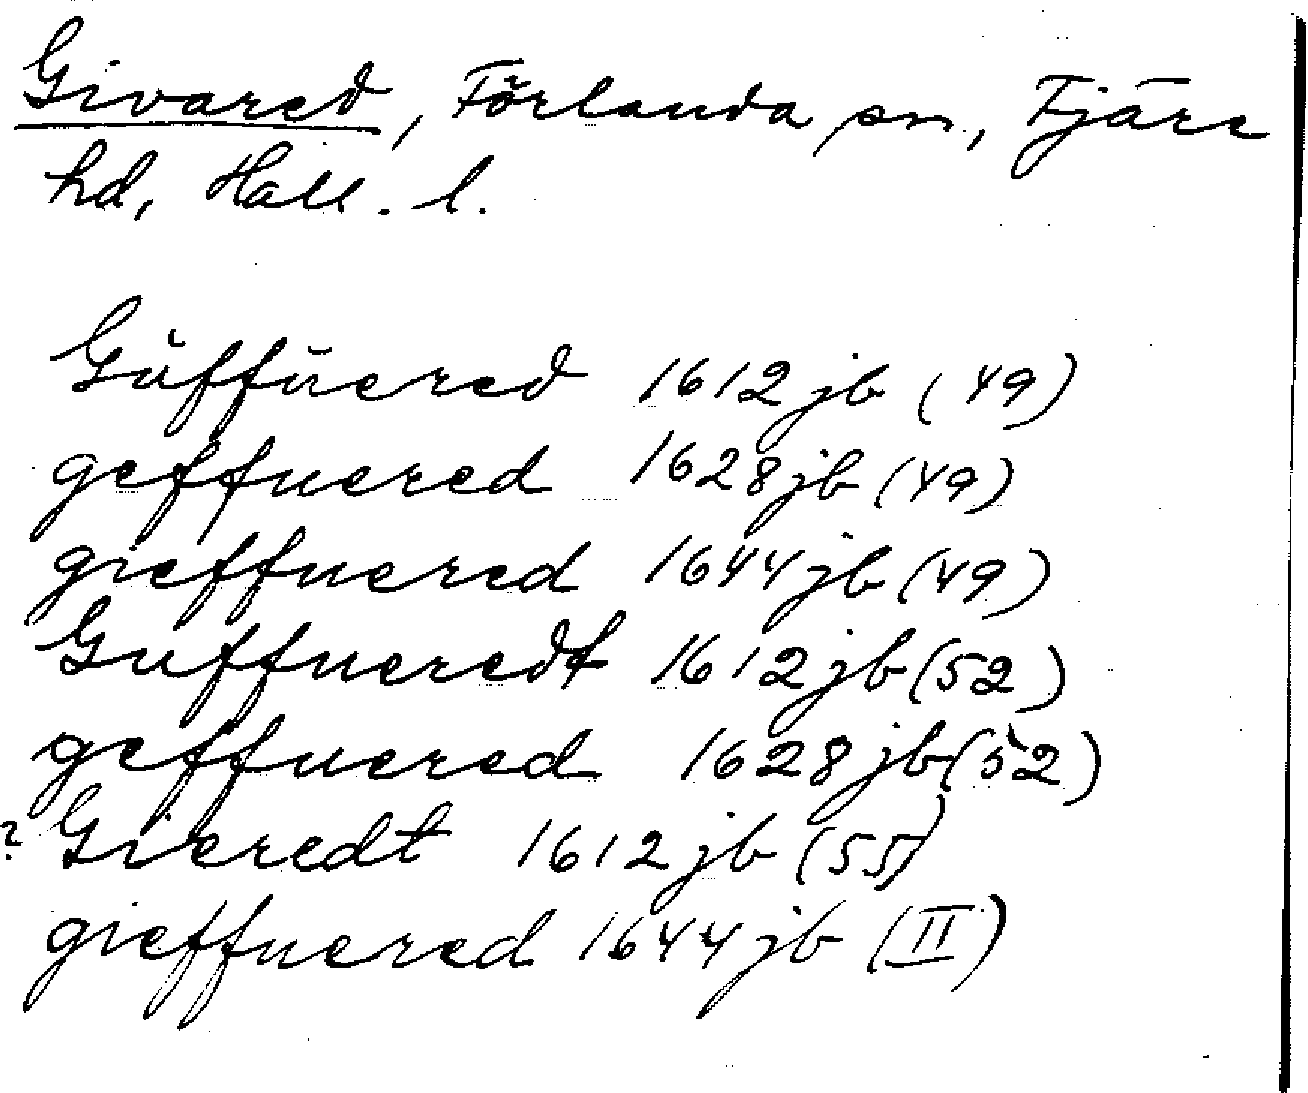 Givared, Förlanda sn, Fjäre
hd, Hall. l.
Gŭffŭered 1612 jb (49)
geffuered 1628 jb (49)
gieffuered 1644 jb (49)
Guffueredt 1612 jb (52)
geffuered 1628 jb (52)
? Gieredt 1612 jb (55)
gieffuered 1644 jb (II)